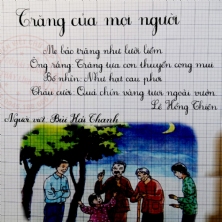 Trăng của mọi người
Mẹ bảo trăng như lưỡi liềm
Ông rằng: Trăng tựa con thuyền cong mui
Bố nhìn: Như hạt cau phơi
Cháu cười: Quả chín vàng tươi ngoài vườn.
Lê Hồng Thiện
Người viết Bùi Hải Thanh